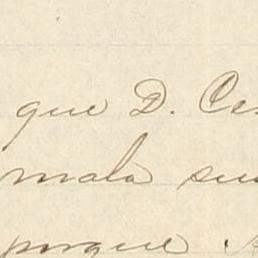 que D. Ce
mala su
porque